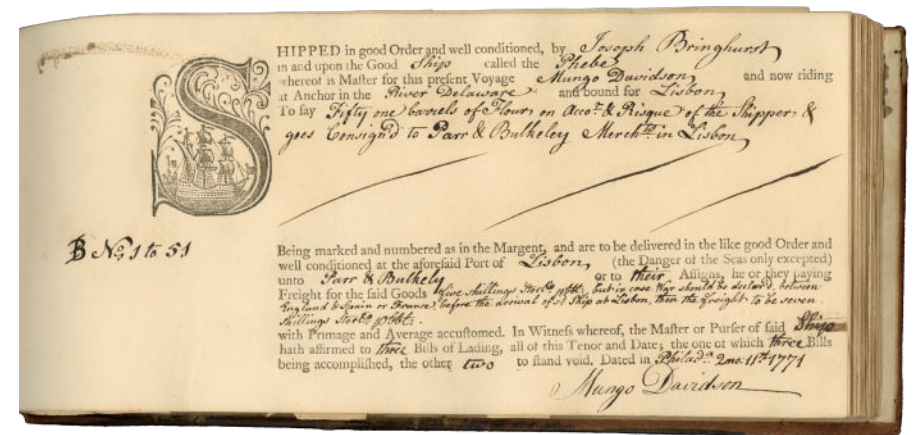 SHIPPED in good Order and well conditioned, by Joseph Bringhurst
in and upon the Good Ship called the Phebe
whereof is Master for this present Voyage Mungo Davidson and now riding
at Anchor in the River Delaware and bound for Lisbon
To say Fifty one barrels of Flour, on Accot. & Risque of the Shipper, &
goes Consign'd to Parr & Bulkeley Mercht.s in Lisbon
B No. 1 to 51
Being marked and numbered as in the Margent, and are to be delivered in the like good Order and
well conditioned at the aforesaid Port of Lisbon, (the Danger of the Seas only excepted)
unto Parr & Bulkely or to their Assigns, he or they paying
Freight for the said Goods five shillings Sterlg. pbbl. but in case War should be declared between
England & Spain or France, before the arrival of sd. Ship at Lisbon, then the freight to be seven
shillings Sterlg. pbbl.
with Primage and Average accustomed. In Witness whereof, the Master or Purser of said Ship
hath affirmed to three Bills of Lading, all of this Tenor and Date; the one of which three Bills
being accomplished, the other two to stand void. Dated in Philada. 2mo. 11th. 1771
Mungo Davidson